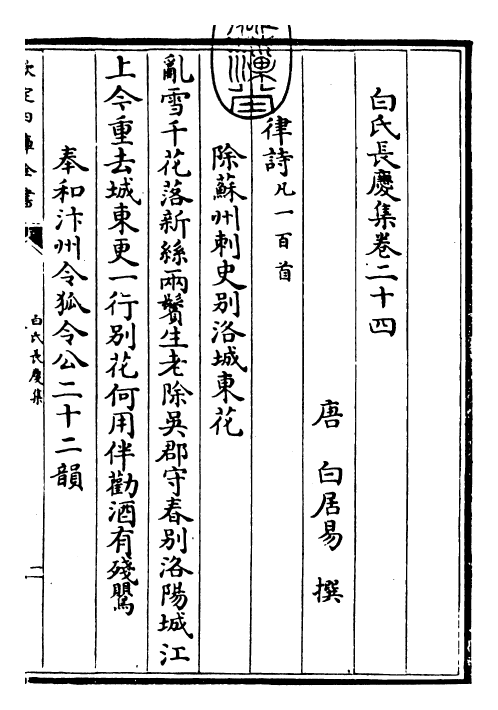 白氏長慶集卷二十四
唐 白居易 撰
律詩凡一百首
除蘇州刺史别洛城東花
亂雪千花落新絲兩鬢生老除吳郡守春别洛陽城江
上今重去城東更一行别花何用伴勸酒有殘鶯
奉和汴州令狐令公二十二韻
欽定四庫全書
白氏長慶集